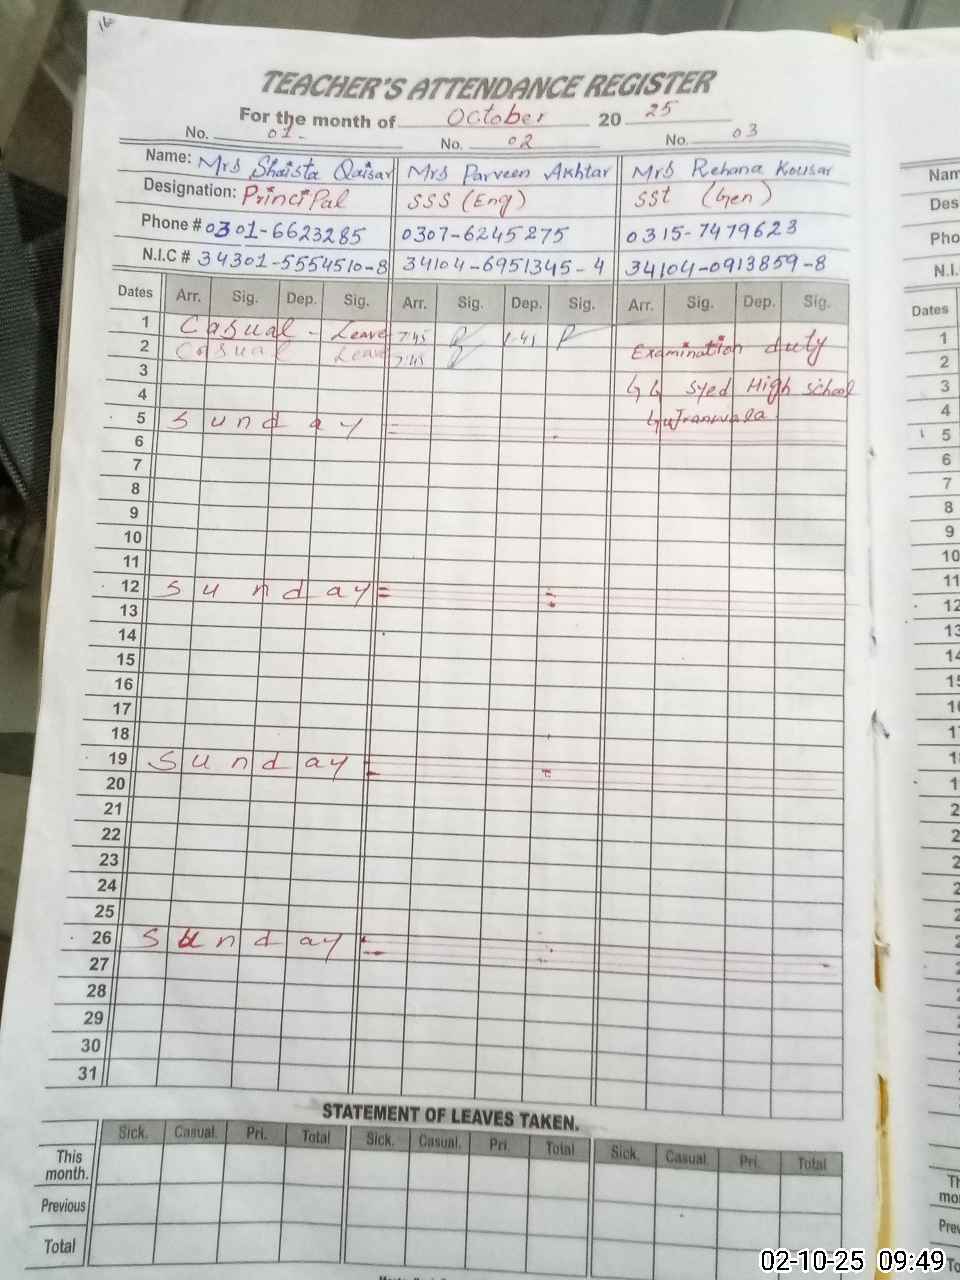 160
TEACHER'S ATTENDANCE REGISTER
For the month of October 20 25
No. 01- No. 02 No. 03
Name: Mrs Shaista Qaisar Mrs Parveen Akhtar Mrs Rehana Kousar
Designation: Principal SSS (Eng) SST (Gen)
Phone # 0301-6623285 0307-6245275 0315-7479623
N.I.C # 34301-5554510-8 34104-6951345-4 34104-0913859-8
Dates Arr. Sig. Dep. Sig. Arr. Sig. Dep. Sig. Arr. Sig. Dep. Sig.
1 Casual - Leave 7:45 1:41
2 Casual Leave 7:45 Examination duty
3 G G Syed High School
4
5 Sunday Gujranwala
6
7
8
9
10
11
12 Sunday
13
14
15
16
17
18
19 Sunday
20
21
22
23
24
25
26 Sunday
27
28
29
30
31
STATEMENT OF LEAVES TAKEN.
Sick. Casual. Pri. Total Sick. Casual. Pri. Total Sick. Casual. Pri. Total
This month.
Previous
Total
Nam
Des
Pho
N.I.
Dates
1
2
3
4
5
6
7
8
9
10
11
12
13
14
15
Th
mo
Prev
To
02-10-25 09:49